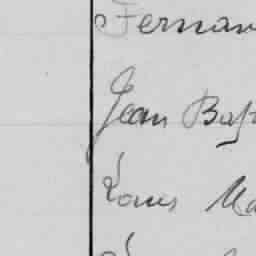 Fernan
Jean Bap
Louis Ma